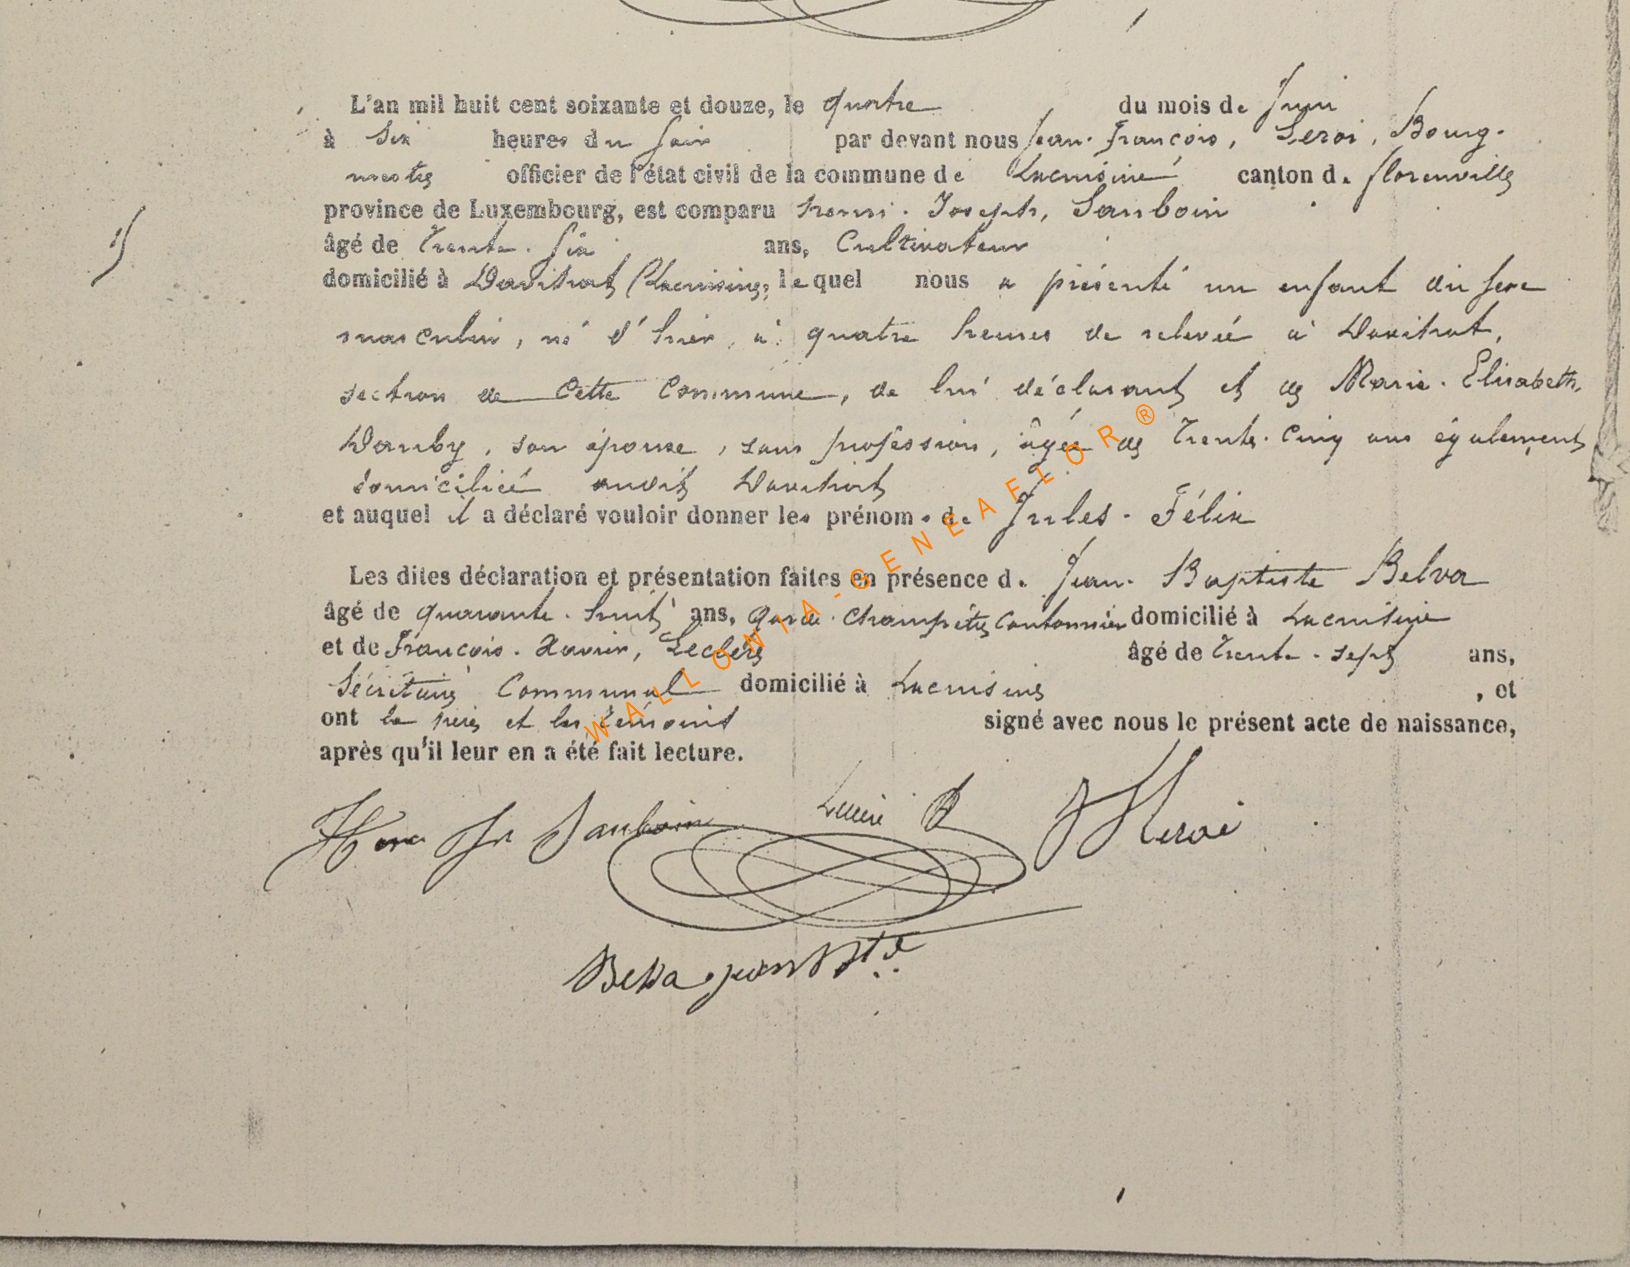 L'an mil huit cent soixante et douze, le quatre du mois de Juin
à Six heures du Soir par devant nous Jean-François, Leroi, Bourg-
mestre officier de l'état civil de la commune de Lacuisine canton de florenville
province de Luxembourg, est comparu henri-Joseph, Sauboin
âgé de Trente-Six ans, Cultivateur
domicilié à (Lacuisine), lequel nous a présenté un enfant du sexe
masculin, né d'hier, à quatre heures de relevée à
section de Cette Commune, de lui déclarant et de Marie-Elisabeth,
son épouse, sans profession, âgée de Trente-Cinq ans également
domiciliée audit
et auquel il a déclaré vouloir donner les prénoms de Jules-Félix
Les dites déclaration et présentation faites en présence de Jean-Baptiste Belva
âgé de quarante-huit ans, Garde-Champêtre, Cantonnier domicilié à Lacuisine
et de François-Xavier, Leclère âgé de Trente-sept ans,
Sécrétaire Communal domicilié à Lacuisine , et
ont le père et les témoins signé avec nous le présent acte de naissance,
après qu'il leur en a été fait lecture.
Sauboin Leroi
Belva jean Bte
WALLONIA-GENEAFLOR®